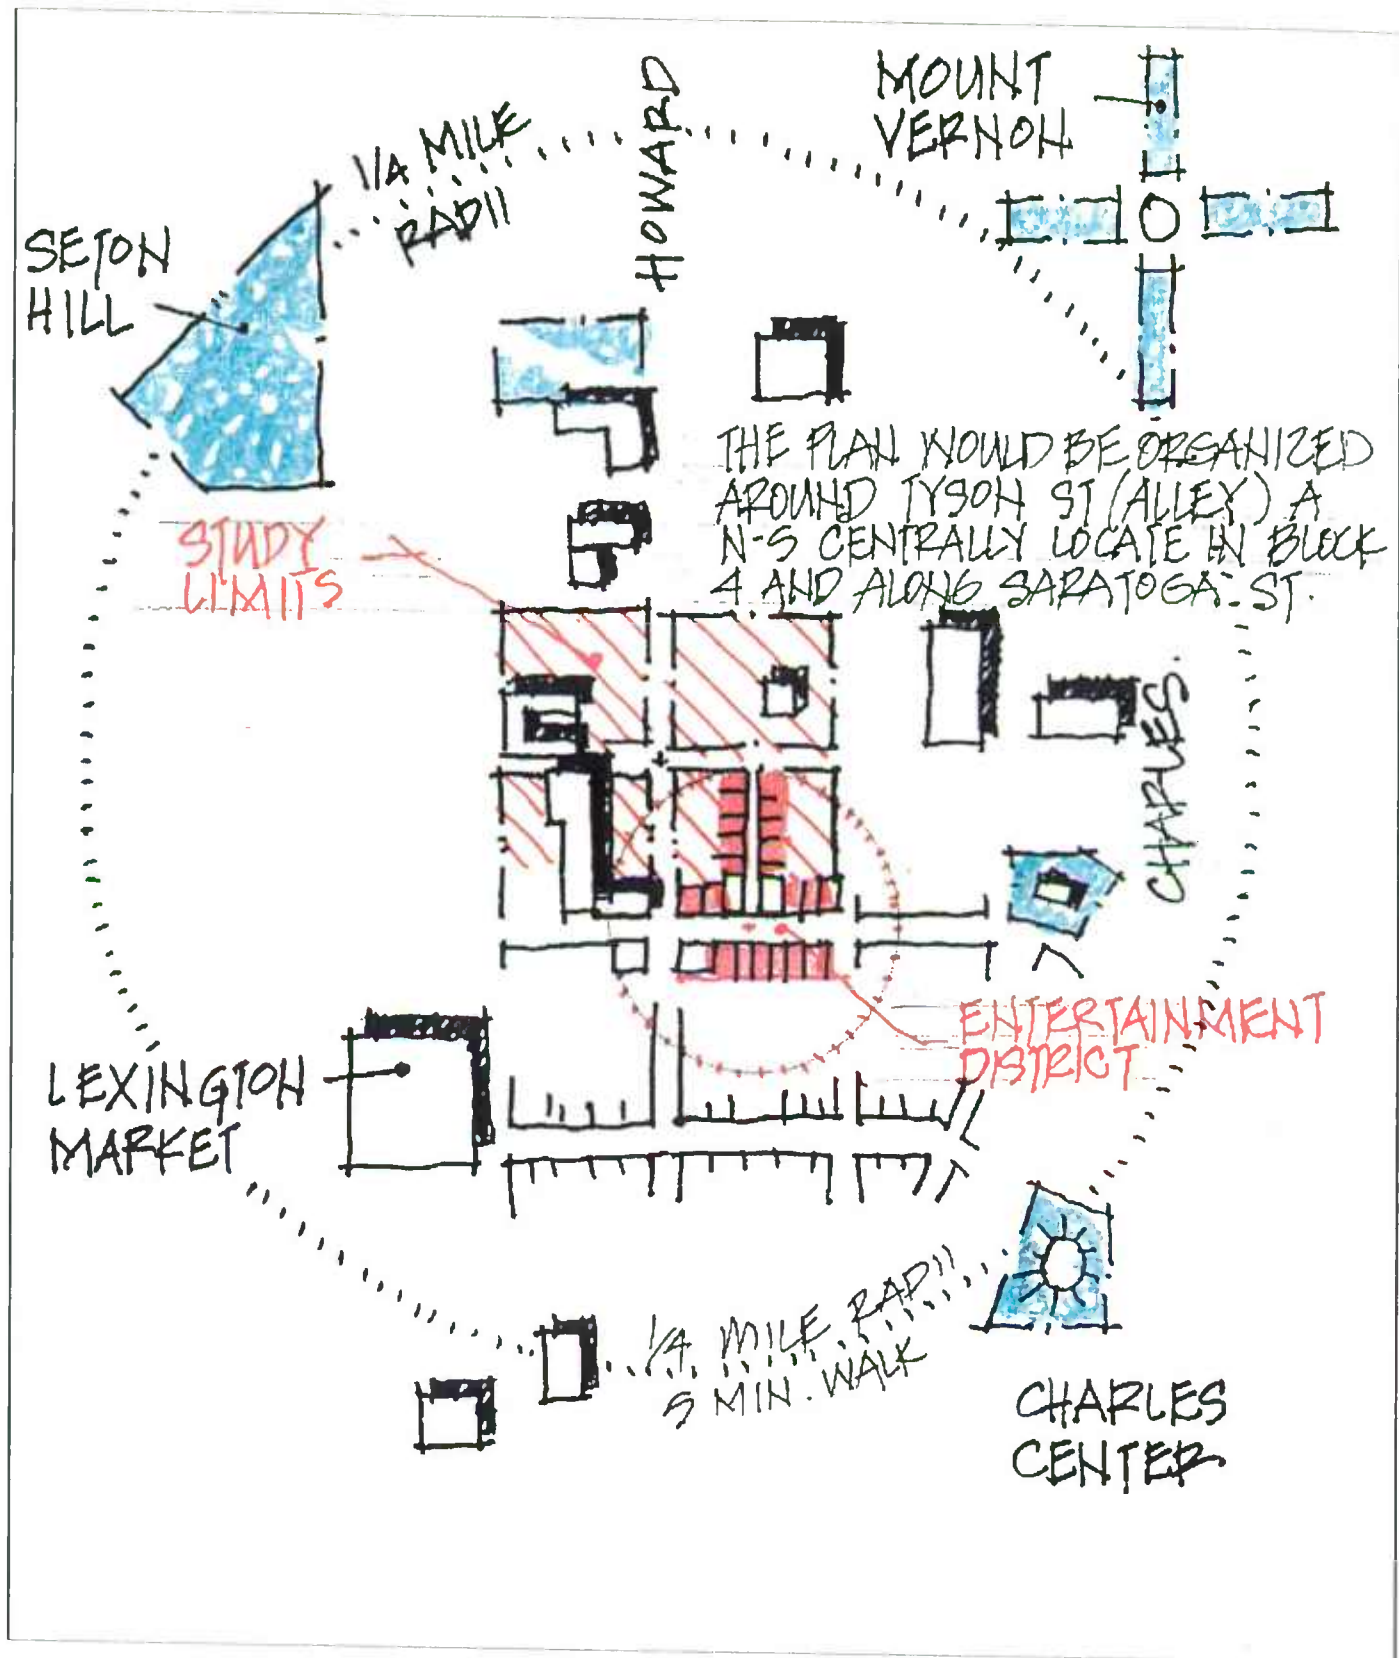 MOUNT
VERNON
HOWARD
1/4 MILE
RADII
SETON
HILL
THE PLAN WOULD BE ORGANIZED
AROUND TYSON ST (ALLEY) A
N-S CENTRALLY LOCATE IN BLOCK
4 AND ALONG SARATOGA ST.
STUDY
LIMITS
CHARLES.
ENTERTAINMENT
DISTRICT
LEXINGTON
MARKET
1/4 MILE RADII
5 MIN. WALK
CHARLES
CENTER